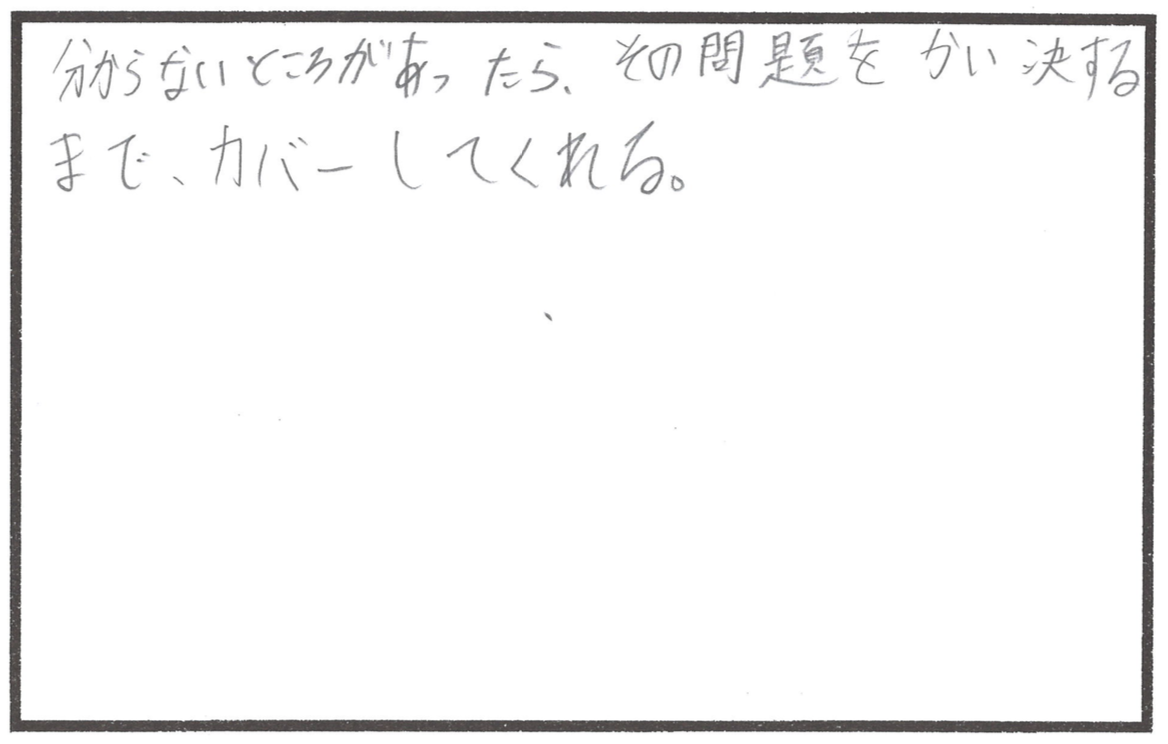 分からないところがあったら、その問題をかい決する
まで、カバーしてくれる。